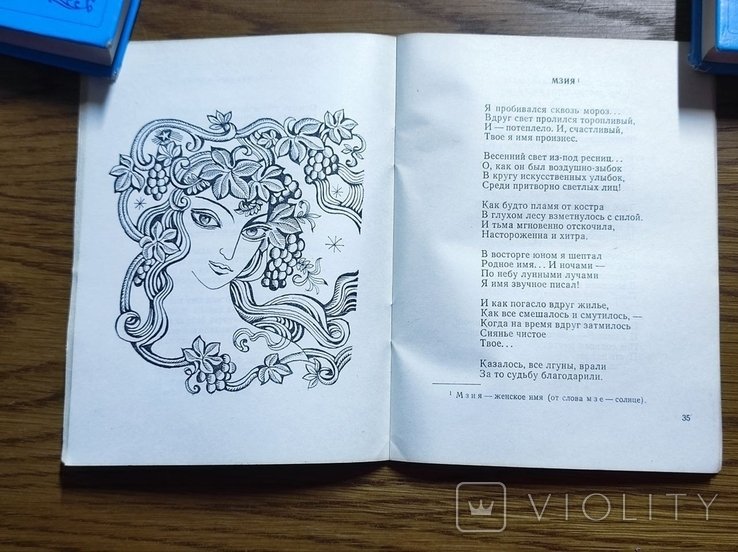 МЗИЯ¹
Я пробивался сквозь мороз...
Вдруг свет пролился торопливый,
И — потеплело. И, счастливый,
Твое я имя произнес.
Весенний свет из-под ресниц...
О, как он был воздушно-зыбок
В кругу искусственных улыбок,
Среди притворно светлых лиц!
Как будто пламя от костра
В глухом лесу взметнулось с силой.
И тьма мгновенно отскочила,
Насторожённа и хитра.
В восторге юном я шептал
Родное имя... И ночами —
По небу лунными лучами
Я имя звучное писал!
И как погасло вдруг жилье,
Как все смешалось и смутилось, —
Когда на время вдруг затмилось
Сиянье чистое
Твое...
Казалось, все лгуны, врали
За то судьбу благодарили.
¹ Мзия — женское имя (от слова мзе — солнце).
35
VIOLITY